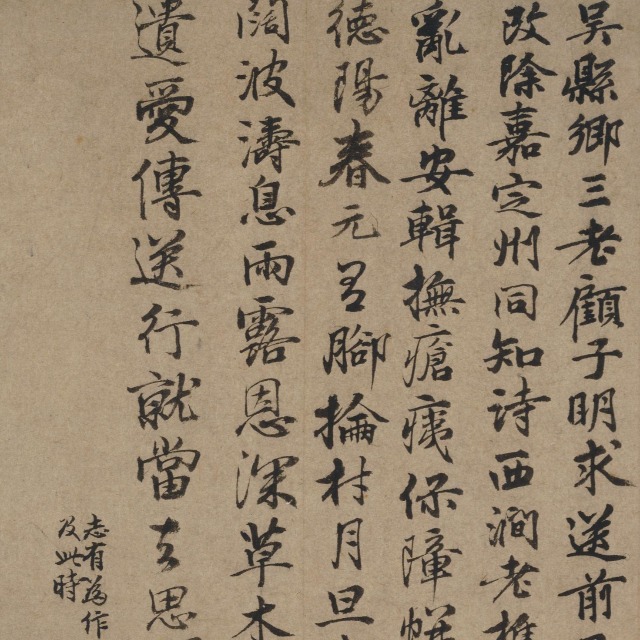 吳縣鄉三老顧子明求送前
改除嘉定州同知詩西澗老樵
亂離安輯撫瘡痍保障
德陽春元召腳掄材月旦
闊波濤息雨露恩深草木
遺愛傳送行就當去思
志有為作
及此時